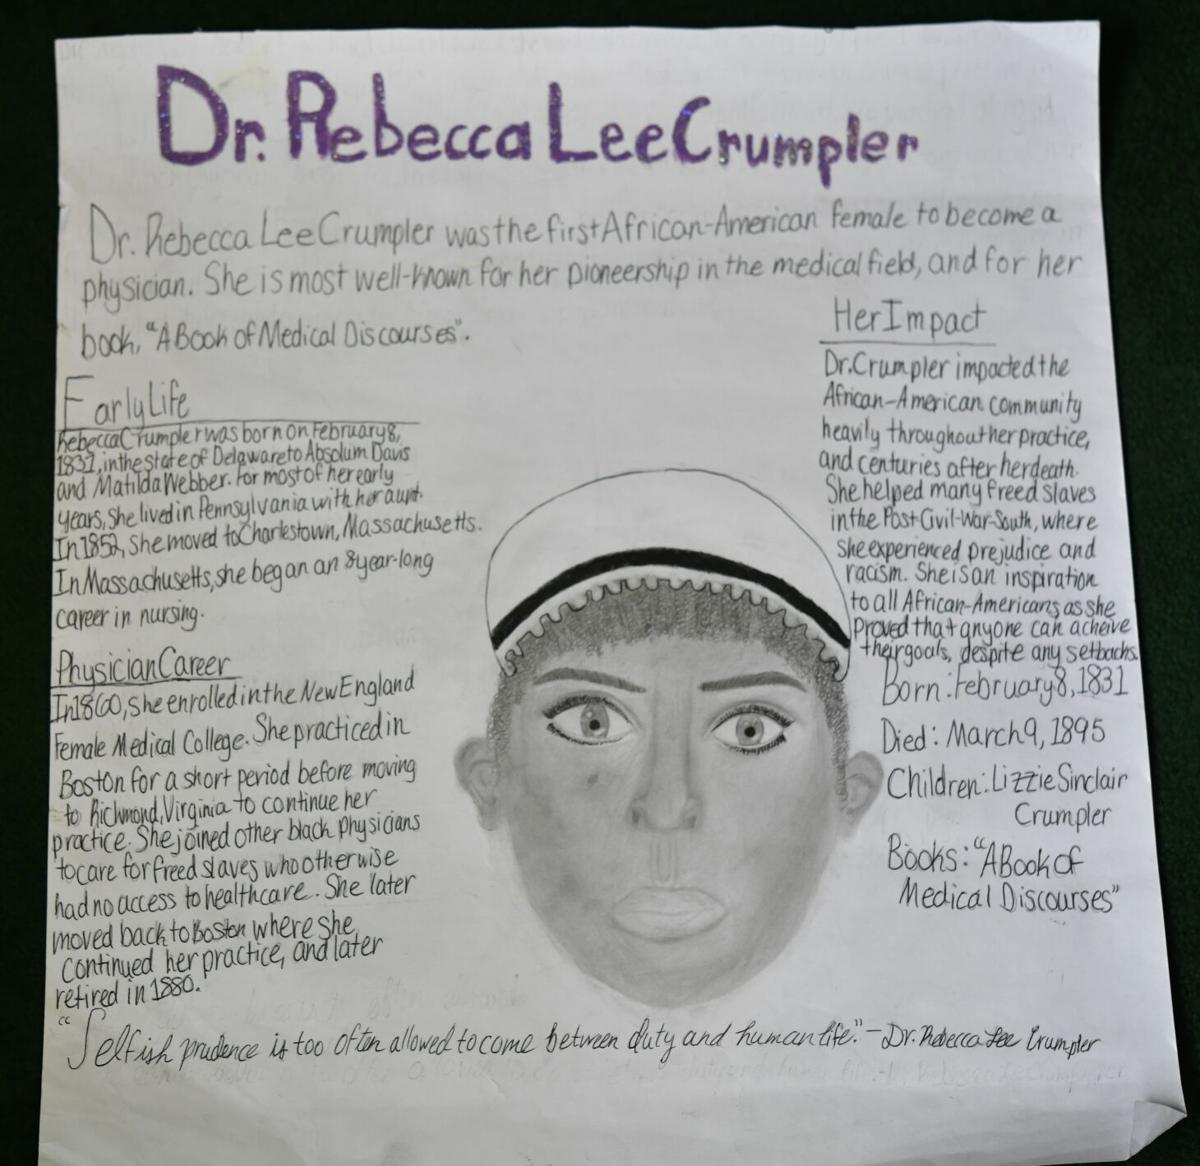 Dr. Rebecca Lee Crumpler
Dr. Rebecca Lee Crumpler was the first African-American female to become a
physician. She is most well-known for her pioneership in the medical field, and for her
book, "A Book of Medical Discourses".
Early Life
Rebecca Crumpler was born on February 8,
1831, in the state of Delaware to Absolum Davis
and Matilda Webber. For most of her early
years, she lived in Pennsylvania with her aunt.
In 1852, she moved to Charlestown, Massachusetts.
In Massachusetts, she began an 8 year-long
career in nursing.
Physician Career
In 1860, she enrolled in the New England
Female Medical College. She practiced in
Boston for a short period before moving
to Richmond, Virginia to continue her
practice. She joined other black physicians
to care for freed slaves who otherwise
had no access to healthcare. She later
moved back to Boston where she
continued her practice, and later
retired in 1880.
Her Impact
Dr. Crumpler impacted the
African-American community
heavily throughout her practice,
and centuries after her death.
She helped many freed slaves
in the Post-Civil-War-South, where
she experienced prejudice and
racism. She is an inspiration
to all African-Americans, as she
proved that anyone can acheive
their goals, despite any setbacks.
Born: February 8, 1831
Died: March 9, 1895
Children: Lizzie Sinclair
Crumpler
Books: "A Book of
Medical Discourses"
"Selfish prudence is too often allowed to come between duty and human life." - Dr. Rebecca Lee Crumpler